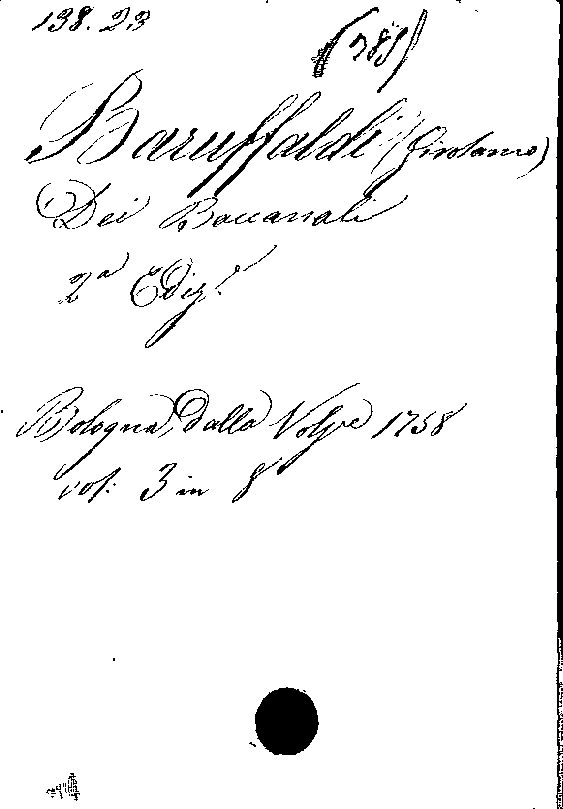 138.23
Baruffaldi (Girolamo)
Dei Baccanali
2ª Ediz.e
Bologna, dalla Volpe 1758
vol: 3 in 8